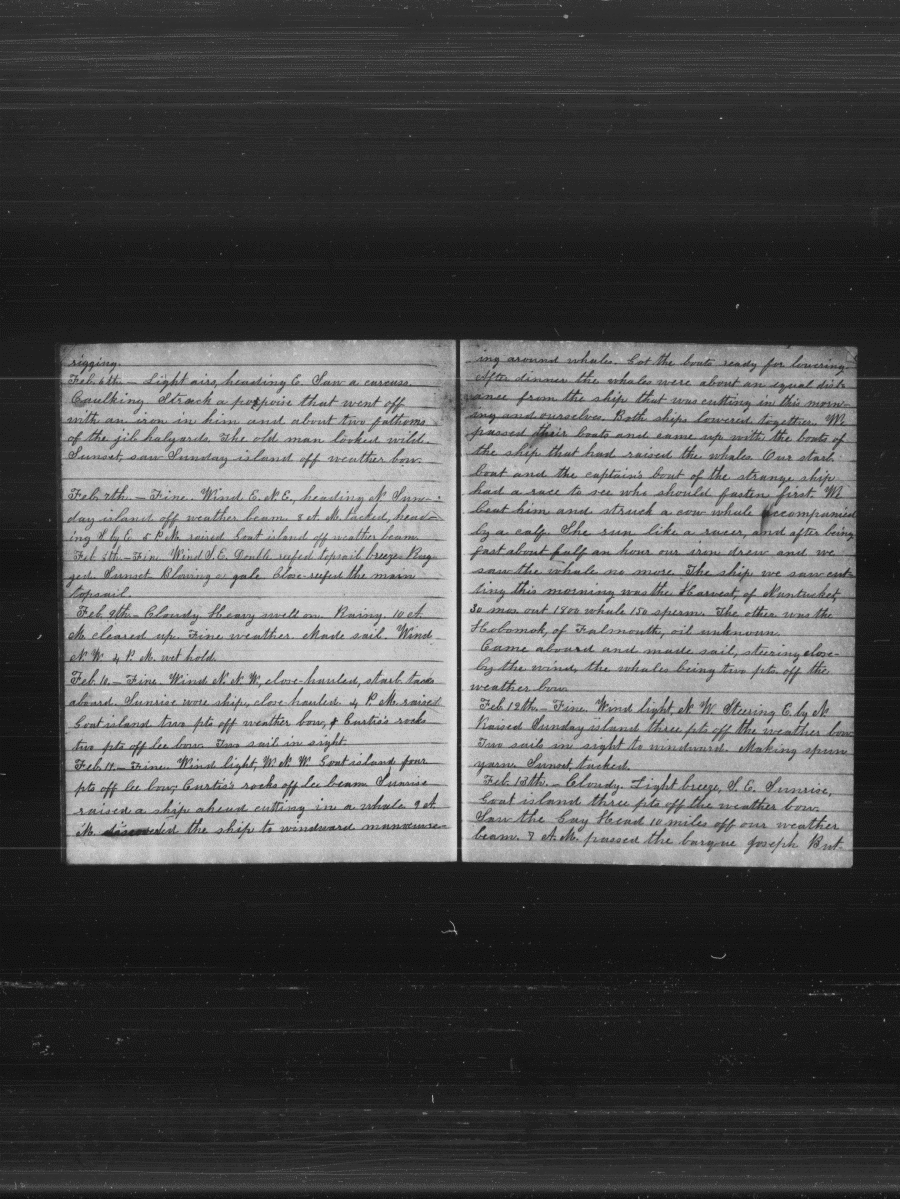 rigging.
Feb. 6th. — Light airs, heading E. Saw a carcass.
Caulking. Struck a porpoise that went off
with an iron in him and about two fathoms
of the jib halyards. The old man looked wild.
Sunset, saw Sunday island off weather bow.
Feb. 7th. — Fine. Wind E. N. E, heading N. Sun-
day island off weather beam. 8 A. M. tacked, head-
ing S. by E. 5 P. M. raised Goat island off weather beam.
Feb. 8th — Fine. Wind S. E. Double reefed topsail breeze. Rug-
ged. Sunset. Blowing a gale. Close-reefed the main
topsail.
Feb. 9th. — Cloudy. Heavy swell on. Rainy. 10 A.
M. cleared up. Fine weather. Made sail. Wind
N. W. 4 P. M. wet hold.
Feb. 10. — Fine. Wind N. N. W, close-hauled, starb. tacks
aboard. Sunrise wore ship, close hauled. 4 P. M. raised
Goat island two pts off weather bow, & Curtis's rocks
two pts off lee bow. Two sail in sight.
Feb. 11. — Fine. Wind light, W. N. W. Goat island four
pts off lee bow; Curtis's rocks off lee beam. Sunrise
raised a ship ahead cutting in a whale. 9 A.
M. discovered the ship to windward maneuver-
ing around whales. Got the boats ready for lowering.
After dinner the whales were about an equal dist-
ance from the ship that was cutting in this morn-
ing and ourselves. Both ships lowered together. We
passed their boats and came up with the boats of
the ship that had raised the whales. Our starb.
boat and the captain's boat of the strange ship
had a race to see who should fasten first. We
beat him and struck a cow whale accompanied
by a calf. She run like a racer, and after being
fast about half an hour our iron drew and we
saw the whale no more. The ship we saw cut-
ting this morning was the Harvest, of Nantucket,
30 mos out 1800 whale 150 sperm. The other was the
Hobomok, of Falmouth, oil unknown.
Came aboard and made sail, steering close-
by the wind, the whales being two pts. off the
weather bow.
Feb 12th. — Fine. Wind light, N. W. Steering E. by N.
Raised Sunday island three pts off the weather bow.
Two sails in sight to windward. Making spun
yarn. Sunset, tacked.
Feb. 13th. — Cloudy. Light breeze, S. E. Sunrise,
Goat island three pts off the weather bow.
Saw the Gay Head 10 miles off our weather
beam. 7 A. M. passed the barque Joseph But-